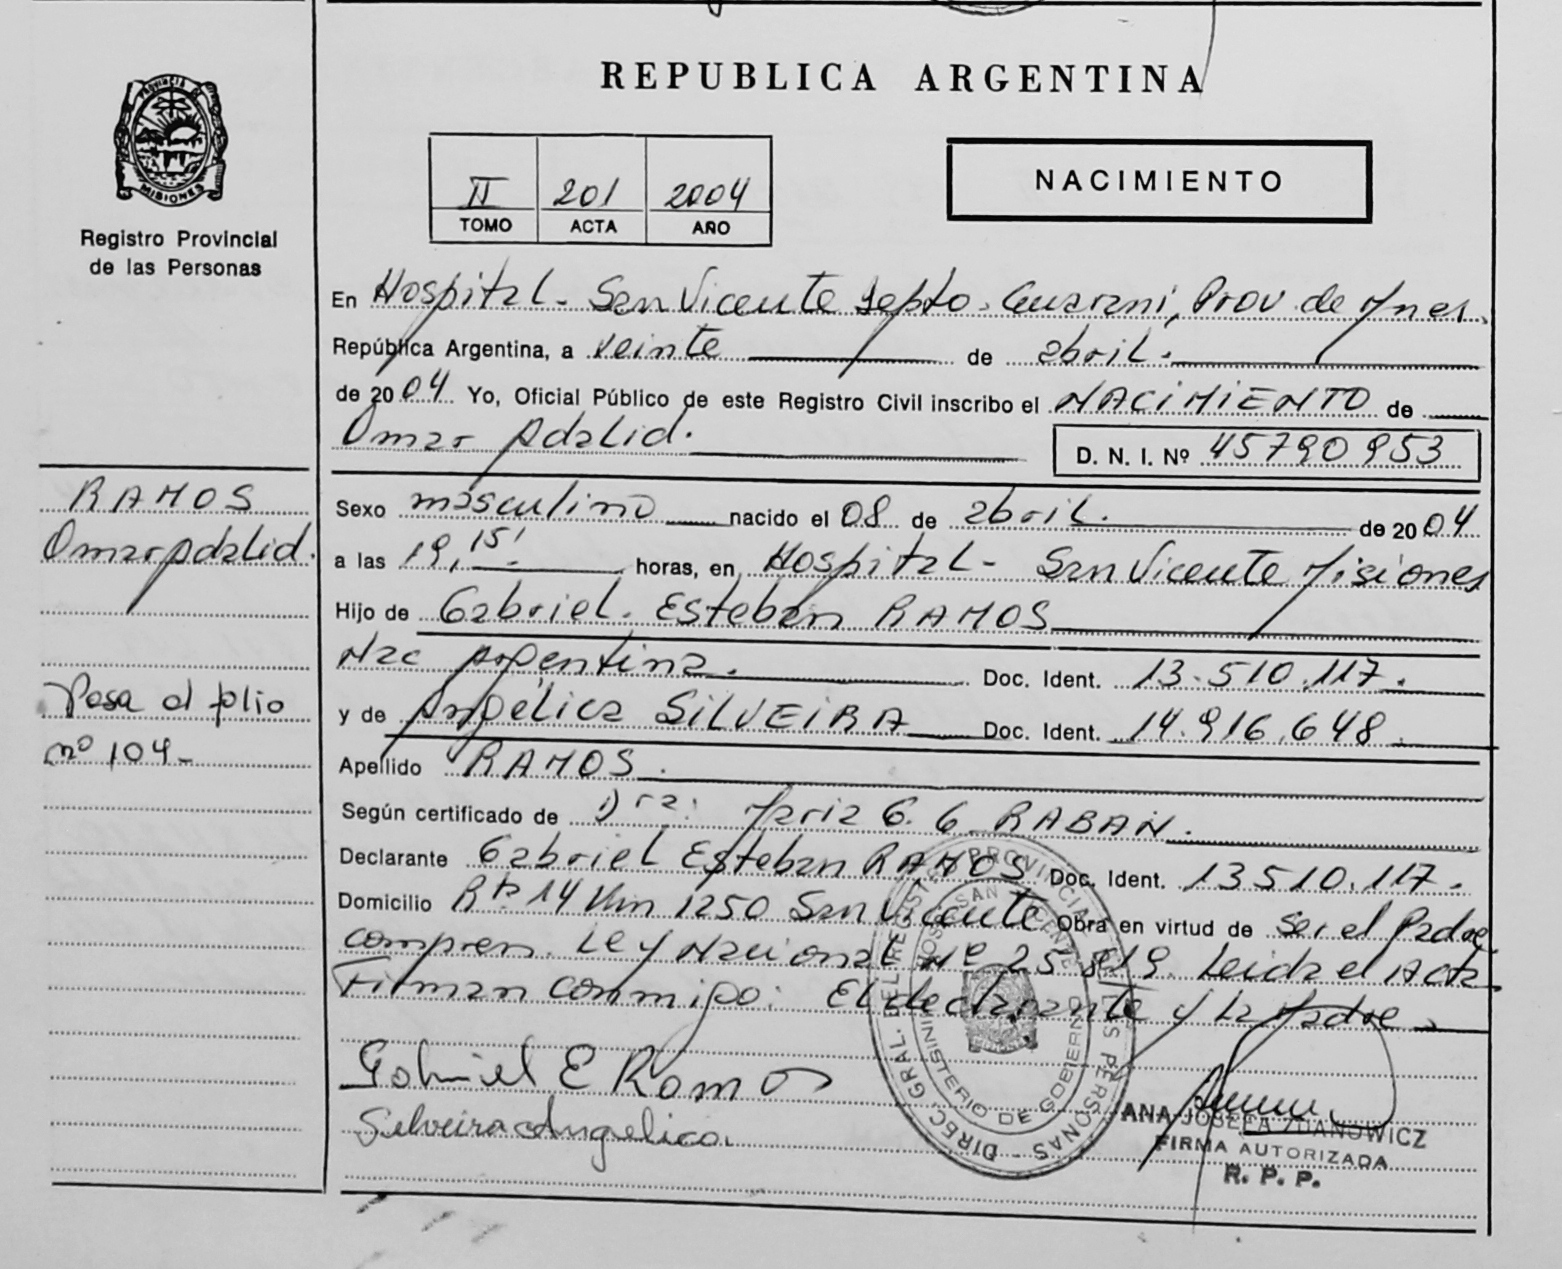 REPUBLICA ARGENTINA
PROVINCIA DE
MISIONES
Registro Provincial
de las Personas
II 201 2004
TOMO ACTA AÑO
NACIMIENTO
En Hospital - San Vicente Depto. Guarani, Prov de Mnes.
República Argentina, a veinte de abril.
de 2004 Yo, Oficial Público de este Registro Civil inscribo el NACIMIENTO de
Omar Adalid.
D. N. I. Nº 45790953
RAMOS
Omar Adalid.
Pasa al folio
nº 104-
Sexo masculino nacido el 08 de abril. de 2004
a las 19,15' horas, en Hospital - San Vicente Misiones
Hijo de Gabriel Esteban RAMOS
Nac Argentina. Doc. Ident. 13.510.117.
y de Angélica SILVEIRA Doc. Ident. 14.916.648
Apellido RAMOS.
Según certificado de Dra: Maria G. G. RABAN.
Declarante Gabriel Esteban RAMOS Doc. Ident. 13510.117.
Domicilio Rta 14 Km 1250 San Vicente Obra en virtud de ser el Padre
compren. Ley Nacional Nº 25.819. Leida el Acta
Firman conmigo: El declarante y la Madre
Gabriel E Ramos
Silveira Angelica.
DIREC. GRAL. DEL REGISTRO PROVINCIAL DE LAS PERSONAS
MINISTERIO DE GOBIERNO
HOSP. SAN VICENTE
ANA JOSEFA ZDANOWICZ
FIRMA AUTORIZADA
R. P. P.